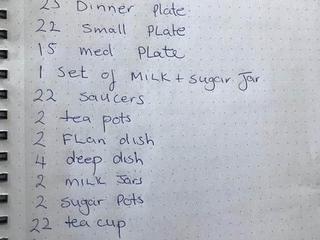 25 Dinner Plate
22 Small Plate
15 med Plate
1 set of MILK + sugar Jar
22 saucers
2 tea pots
2 Flan dish
4 deep dish
2 MILK Jars
2 sugar Pots
22 tea cup